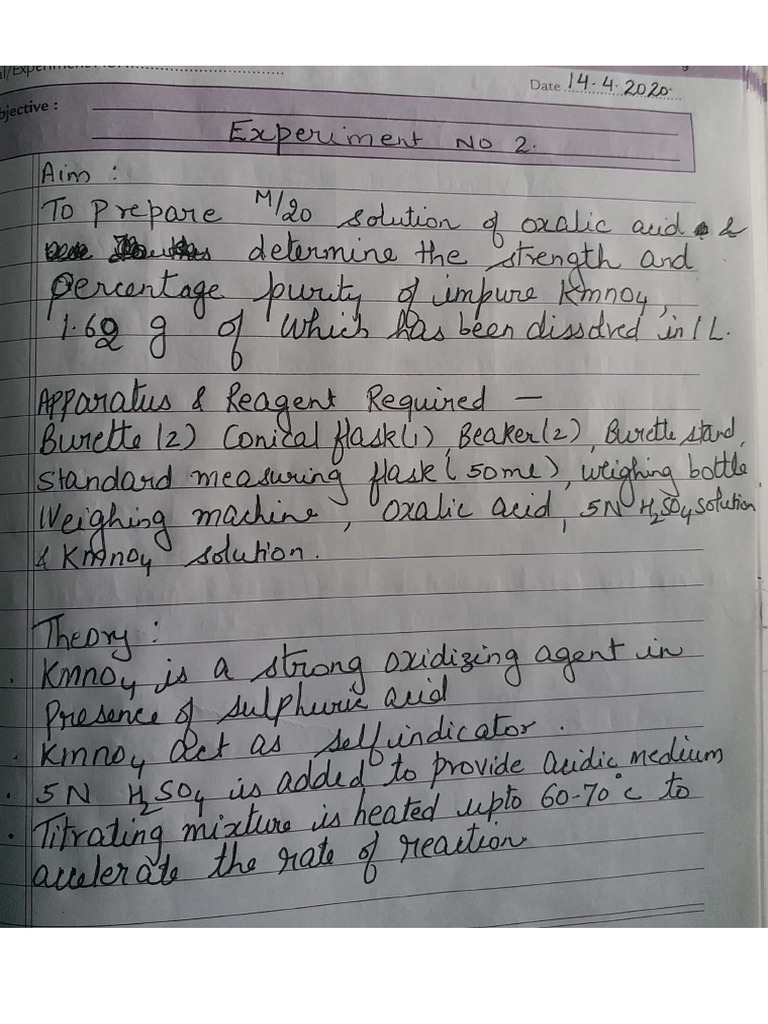 Date 14.4.2020.
bjective :
Experiment NO 2.
Aim :
To Prepare M/20 solution of oxalic acid &
determine the strength and
percentage purity of impure Kmno4,
1.62 g of which has been dissolved in 1 L.
Apparatus & Reagent Required —
Burette (2) Conical flask (1), Beaker (2), Burette stand,
standard measuring flask (50ml), weighing bottle
Weighing machine, oxalic acid, 5N H2SO4 solution
& KMnO4 solution.
Theory :
. KMNO4 is a strong oxidizing agent in
Presence of sulphuric acid
. Kmno4 act as self indicator.
. 5N H2SO4 is added to provide acidic medium
. Titrating mixture is heated upto 60-70°c to
accelerate the rate of reaction